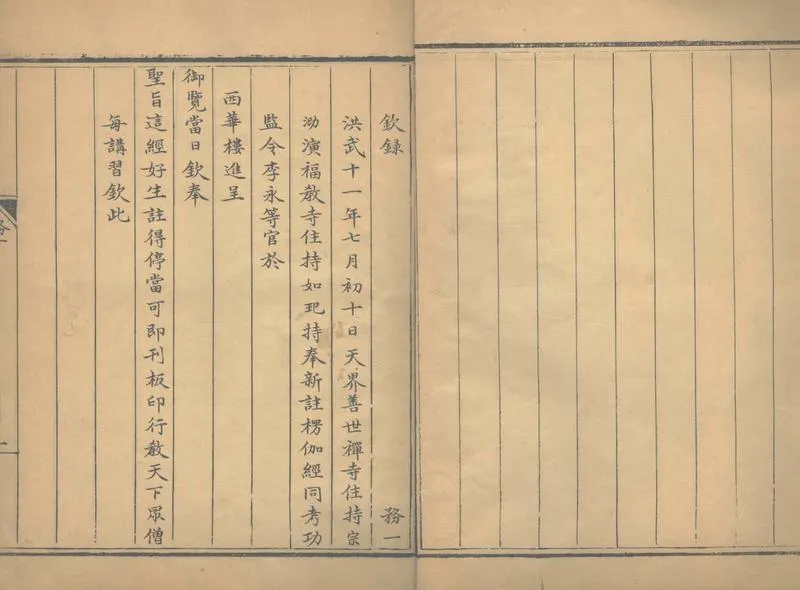 欽録 務一
洪武十一年七月初十日天界善世禪寺住持宗
泐演福教寺住持如玘持奉新註楞伽經同考功
監令李永等官於
西華樓進呈
御覽當日欽奉
聖旨這經好生註得停當可即刊板印行教天下眾僧
每講習欽此